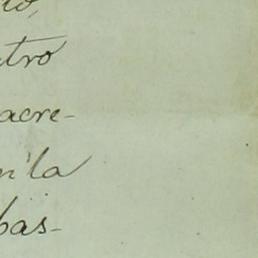 io,
tro
acre-
n la
bas-